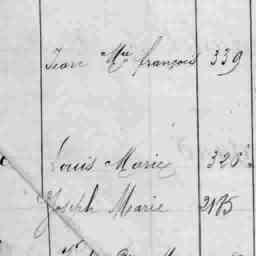 Jean Mie françois 339
Louis Marie 328
Joseph Marie 2185